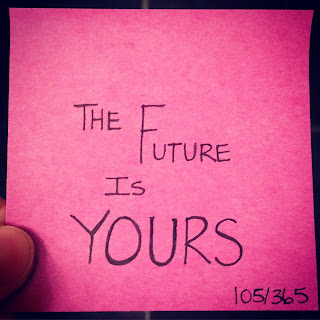 THE FUTURE
IS
YOURS
105/365